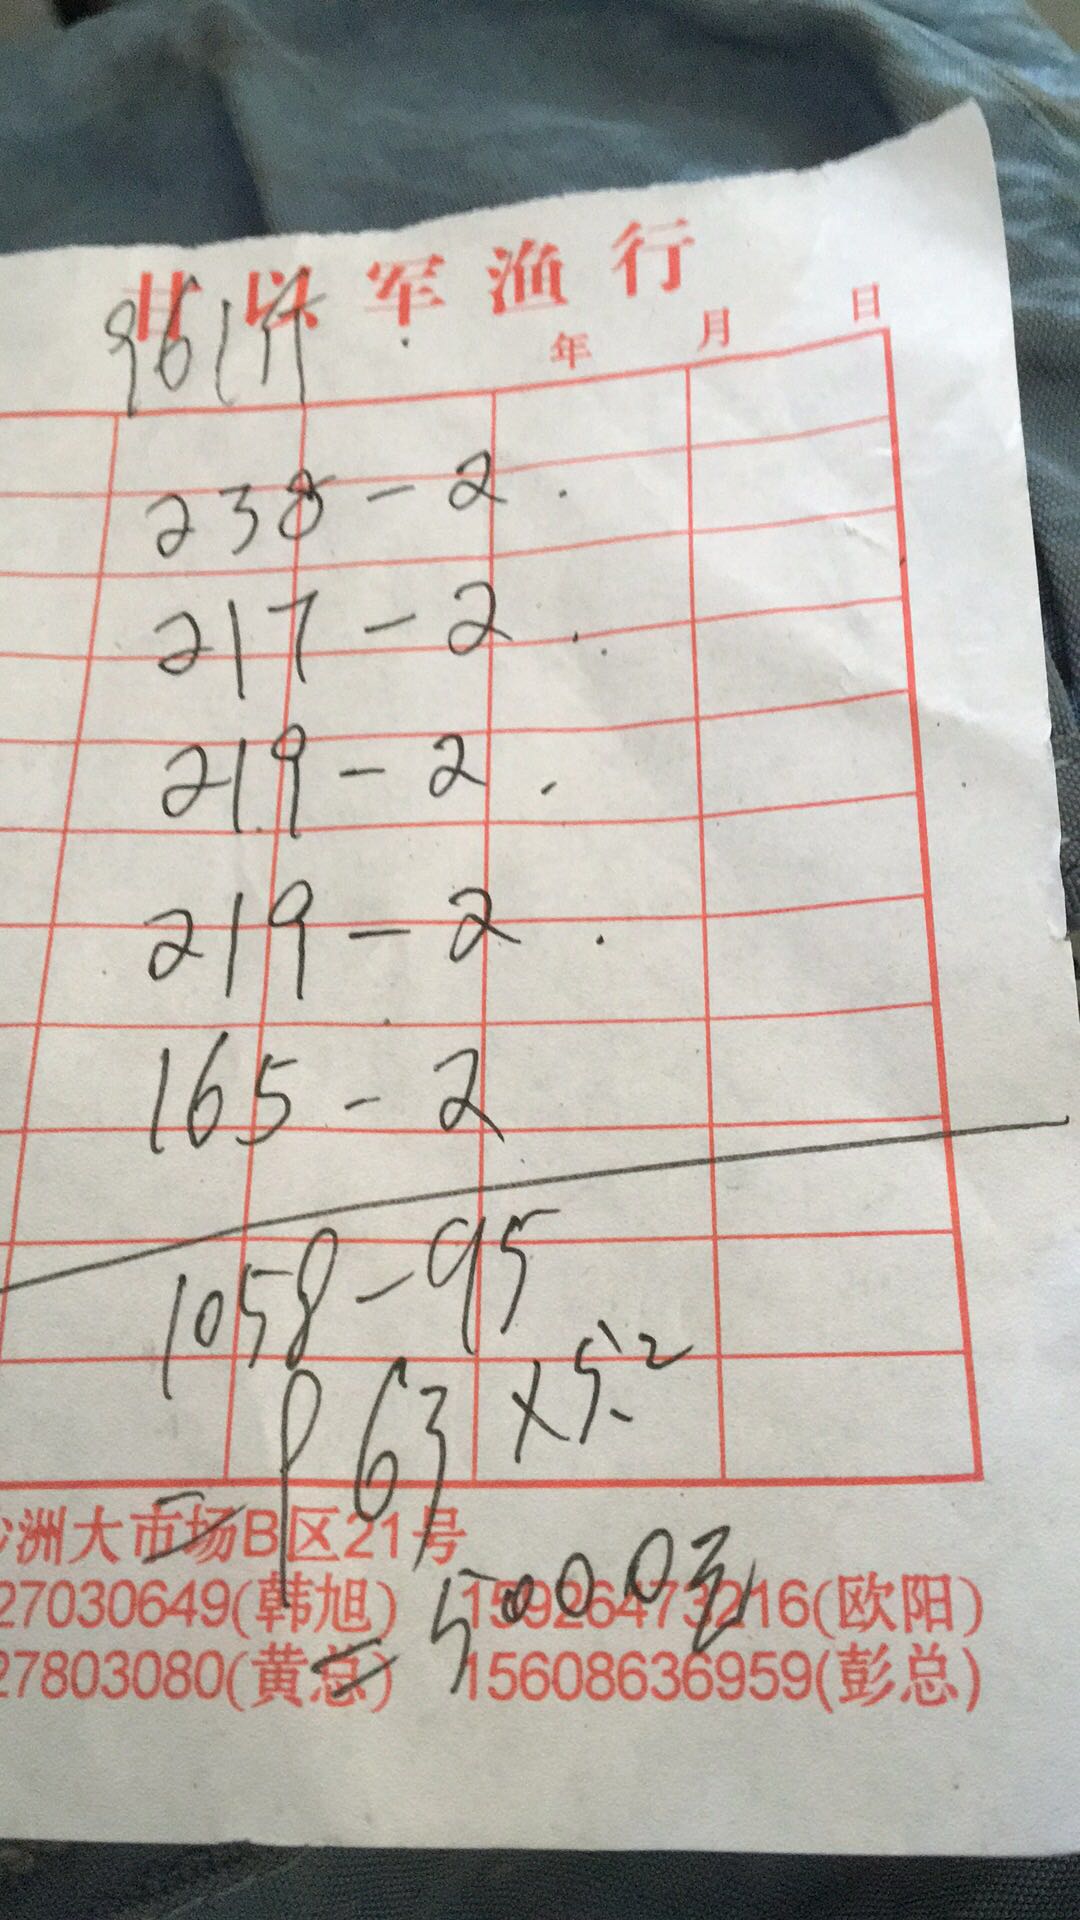 甘以军渔行
961斤
年 月 日
238-2.
217-2.
219-2.
219-2.
165-2
1058-95
963×5.2
洲大市场B区21号
=5000元
27030649(韩旭) 15926473216(欧阳)
27803080(黄总) 15608636959(彭总)